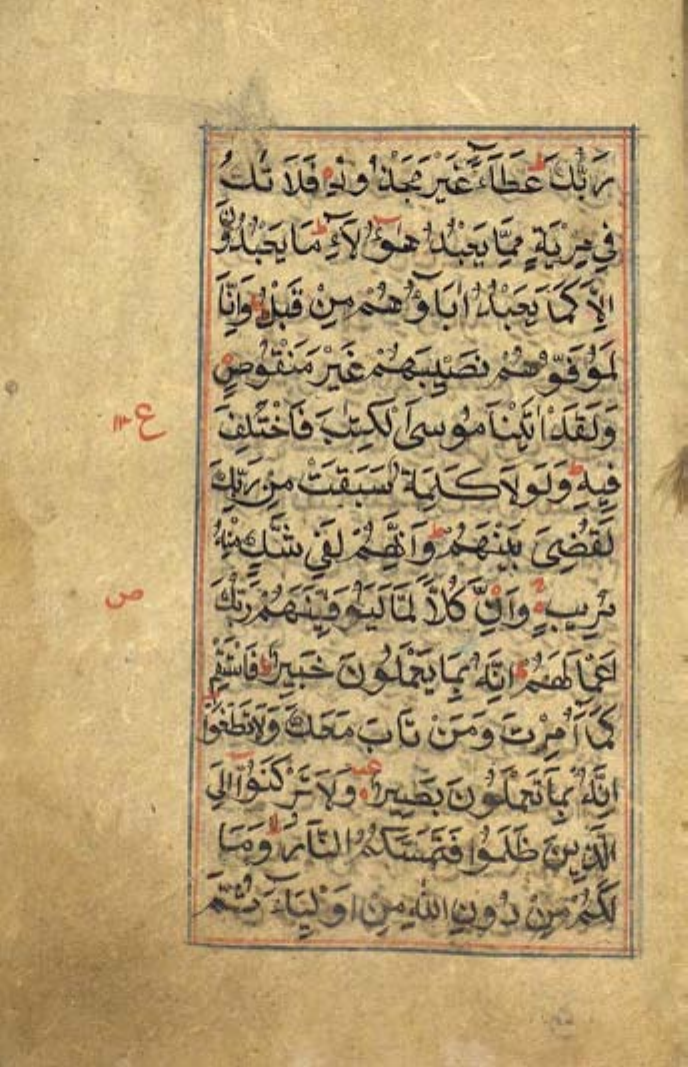 رَبُّكَ عَطَآءً غَيْرَ مَجْذُوذٍ فَلَا تَكُ
فِي مِرْيَةٍ مِمَّا يَعْبُدُ هٰٓؤُلَآءِ مَا يَعْبُدُونَ
اِلَّا كَمَا يَعْبُدُ اٰبَآؤُهُمْ مِنْ قَبْلُ وَاِنَّا
لَمُوَفُّوْهُمْ نَصِيْبَهُمْ غَيْرَ مَنْقُوْصٍ
وَلَقَدْ اٰتَيْنَا مُوسَى الْكِتٰبَ فَاخْتُلِفَ
فِيهِ وَلَوْلَا كَلِمَةٌ سَبَقَتْ مِنْ رَبِّكَ
لَقُضِيَ بَيْنَهُمْ وَاِنَّهُمْ لَفِي شَكٍّ مِنْهُ
مُرِيبٍ وَاِنَّ كُلًّا لَمَّا لَيُوَفِّيَنَّهُمْ رَبُّكَ
اَعْمَالَهُمْ اِنَّهُ بِمَا يَعْمَلُونَ خَبِيرٌ فَاسْتَقِمْ
كَمَآ اُمِرْتَ وَمَنْ تَابَ مَعَكَ وَلَا تَطْغَوْا
اِنَّهُ بِمَا تَعْمَلُونَ بَصِيرٌ وَلَا تَرْكَنُوْٓا اِلَى
الَّذِينَ ظَلَمُوا فَتَمَسَّكُمُ النَّارُ وَمَا
لَكُمْ مِنْ دُونِ اللّٰهِ مِنْ اَوْلِيَآءَ ثُمَّ
ع
ص